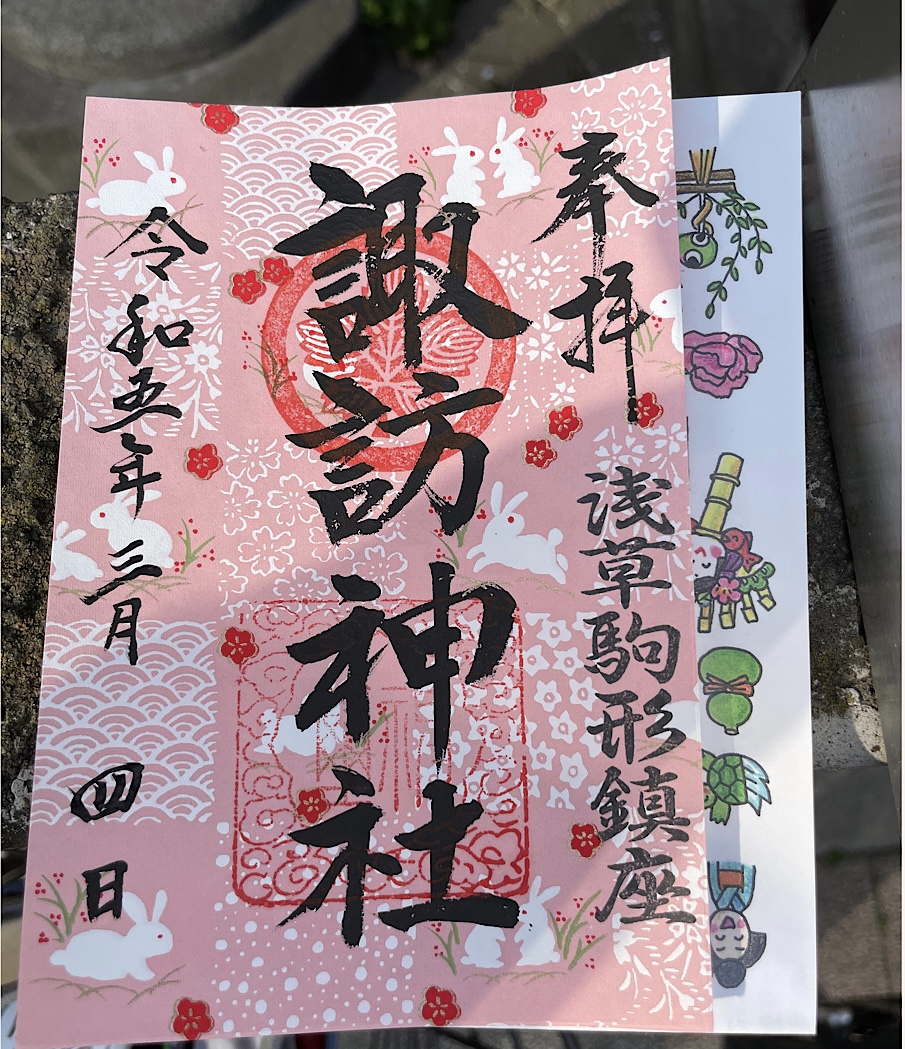 奉拝
浅草駒形鎮座
諏訪神社
令和五年三月四日